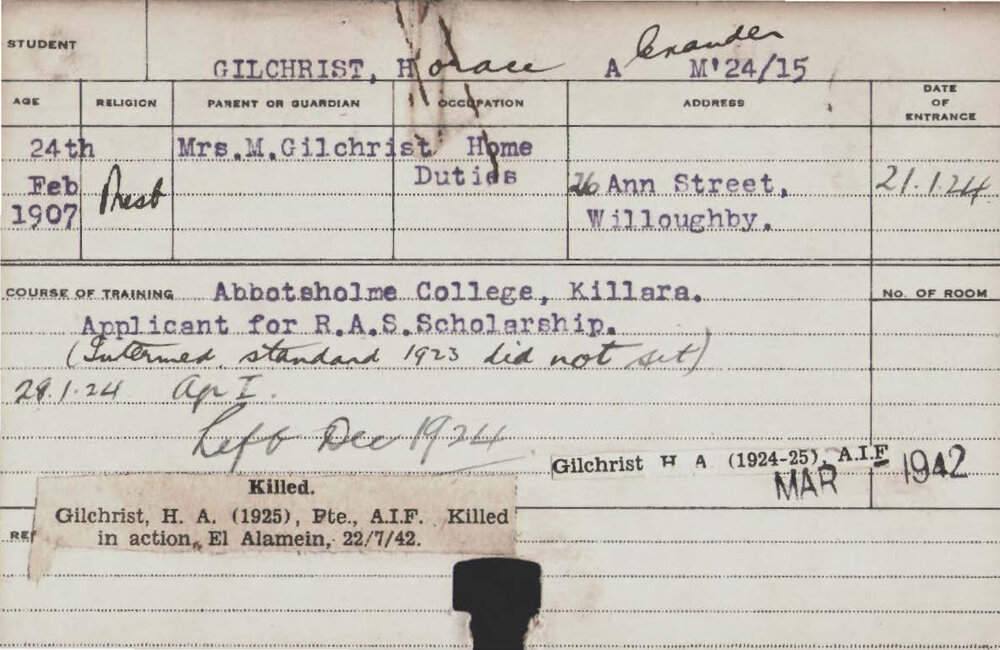 STUDENT
GILCHRIST, Horace Alexander M'24/15
AGE RELIGION PARENT OR GUARDIAN OCCUPATION ADDRESS DATE OF ENTRANCE
24th Feb 1907
Presb
Mrs.M.Gilchrist
Home Duties
26 Ann Street,
Willoughby.
21.1.24
COURSE OF TRAINING Abbotsholme College, Killara.
No. OF ROOM
Applicant for R.A.S.Scholarship.
(Intermed. standard 1923 did not sit)
29.1.24 Ag I.
Left Dec 1924
Gilchrist H A (1924-25), A.I.F
MAR 1942
Killed.
Gilchrist, H. A. (1925), Pte., A.I.F. Killed
in action, El Alamein, 22/7/42.